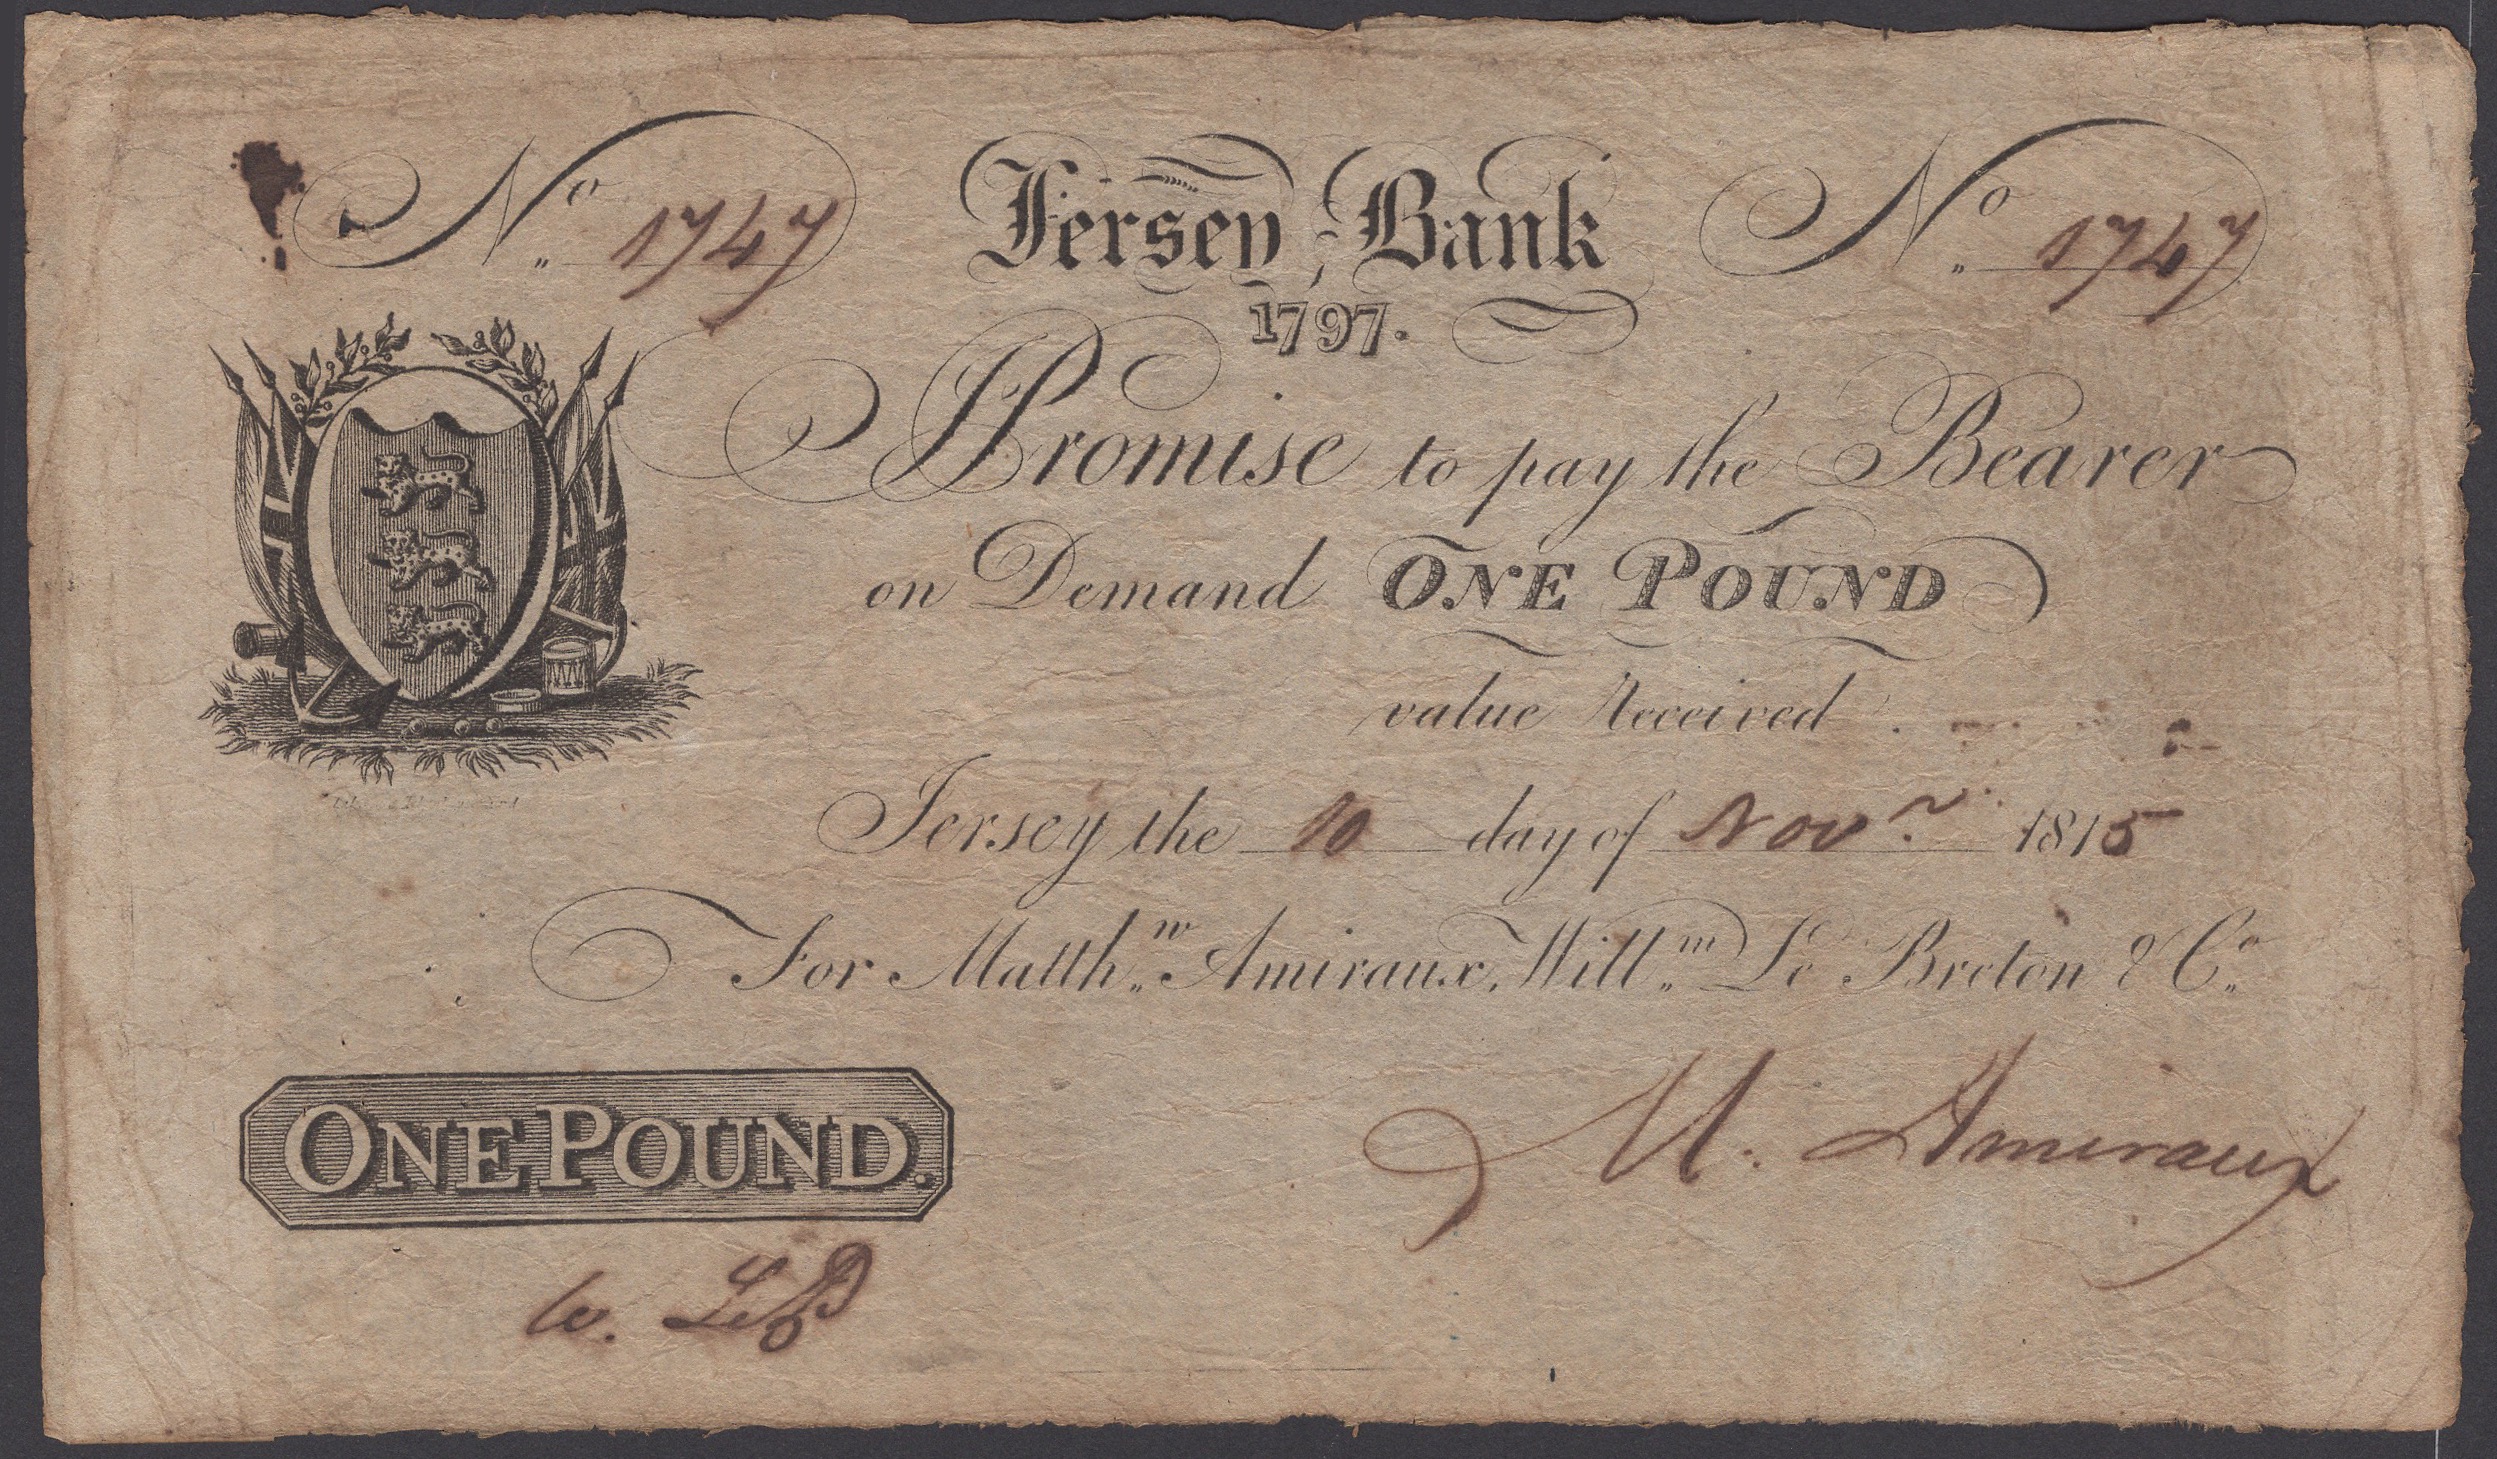 No. 1747 Jersey Bank No. 1747
1797.
I Promise to pay the Bearer
on Demand ONE POUND
value Received
Jersey the 10 day of Novr. 1815
For Matthw. Amiraux, Willm. Le Breton & Co.
M. Amiraux
ONE POUND.
W. LeB